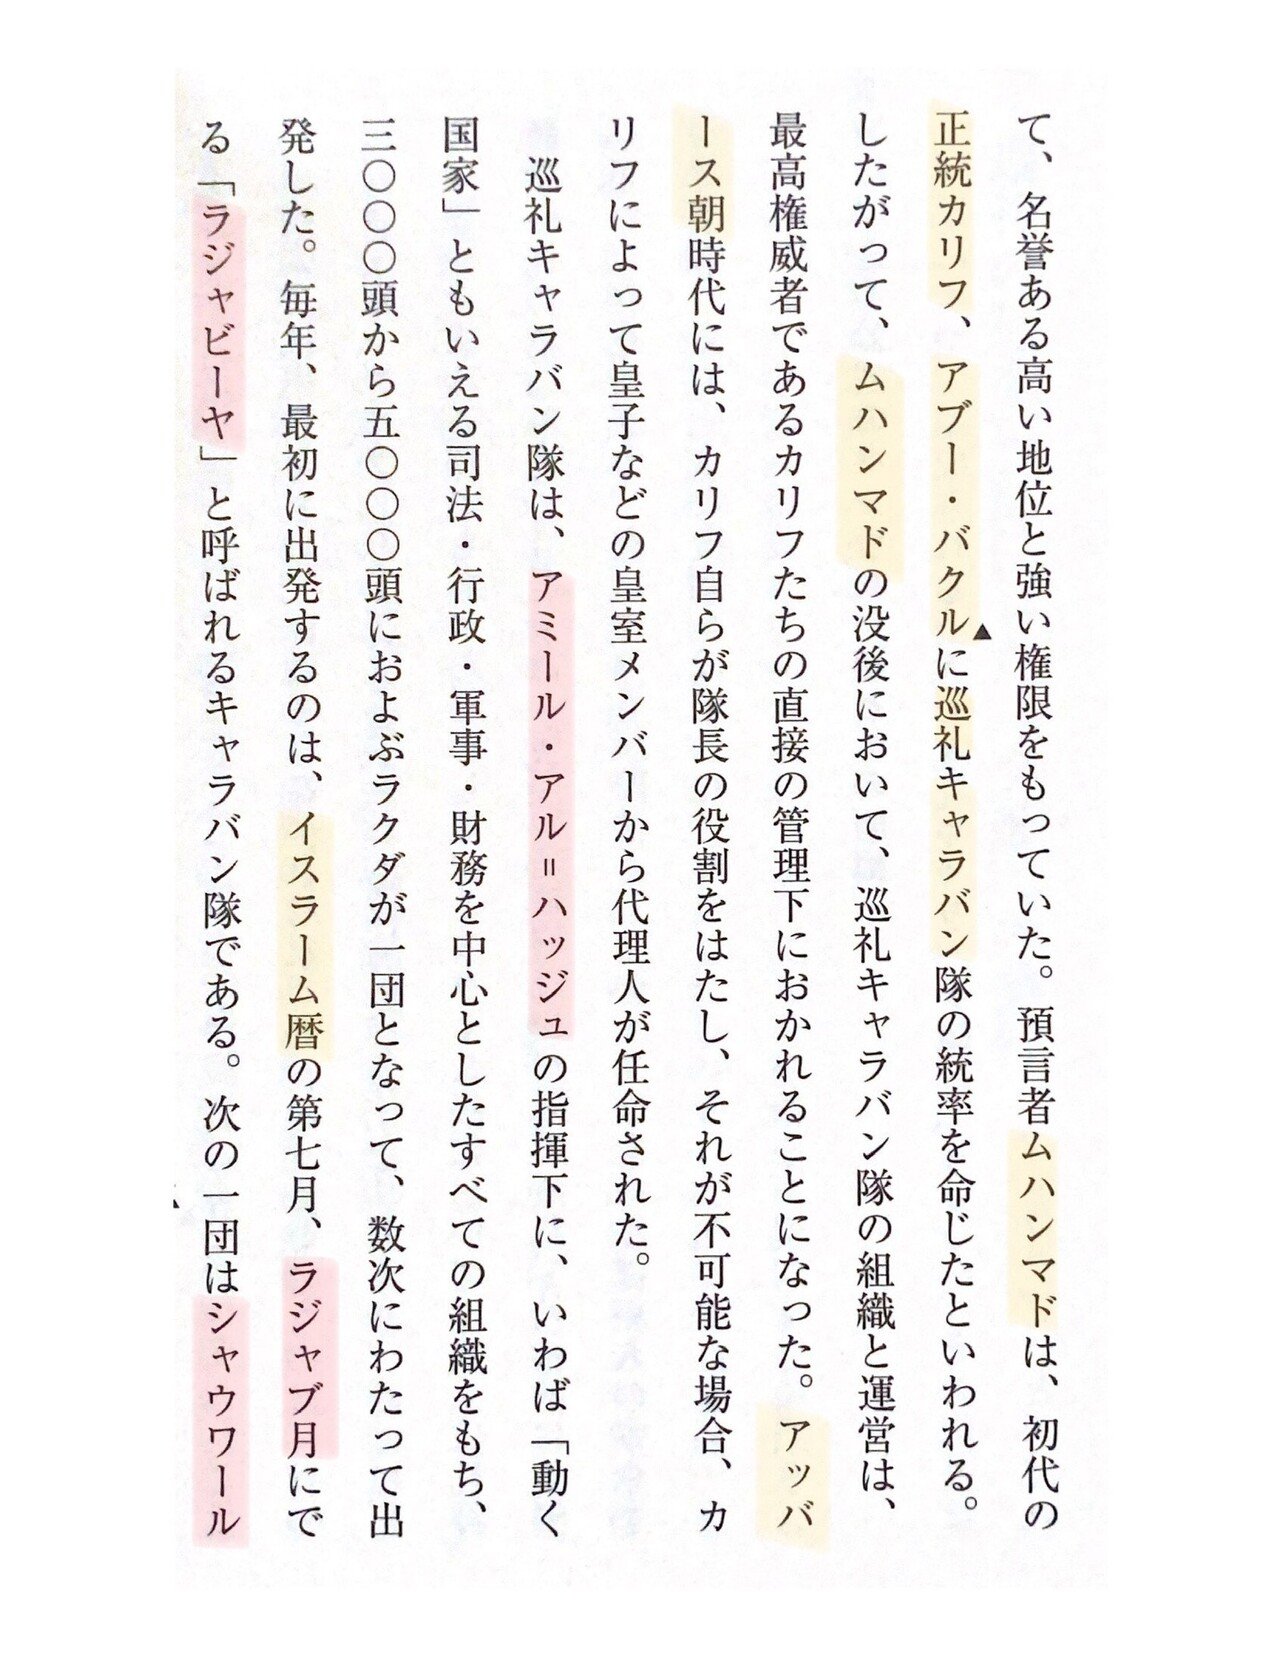 て、名誉ある高い地位と強い権限をもっていた。預言者ムハンマドは、初代の
正統カリフ、アブー・バクル▲に巡礼キャラバン隊の統率を命じたといわれる。
したがって、ムハンマドの没後において、巡礼キャラバン隊の組織と運営は、
最高権威者であるカリフたちの直接の管理下におかれることになった。アッバ
ース朝時代には、カリフ自らが隊長の役割をはたし、それが不可能な場合、カ
リフによって皇子などの皇室メンバーから代理人が任命された。
巡礼キャラバン隊は、アミール・アル＝ハッジュの指揮下に、いわば「動く
国家」ともいえる司法・行政・軍事・財務を中心としたすべての組織をもち、
三〇〇〇頭から五〇〇〇頭におよぶラクダが一団となって、数次にわたって出
発した。毎年、最初に出発するのは、イスラーム暦の第七月、ラジャブ月にで
る「ラジャビーヤ」と呼ばれるキャラバン隊である。次の一団はシャウワール